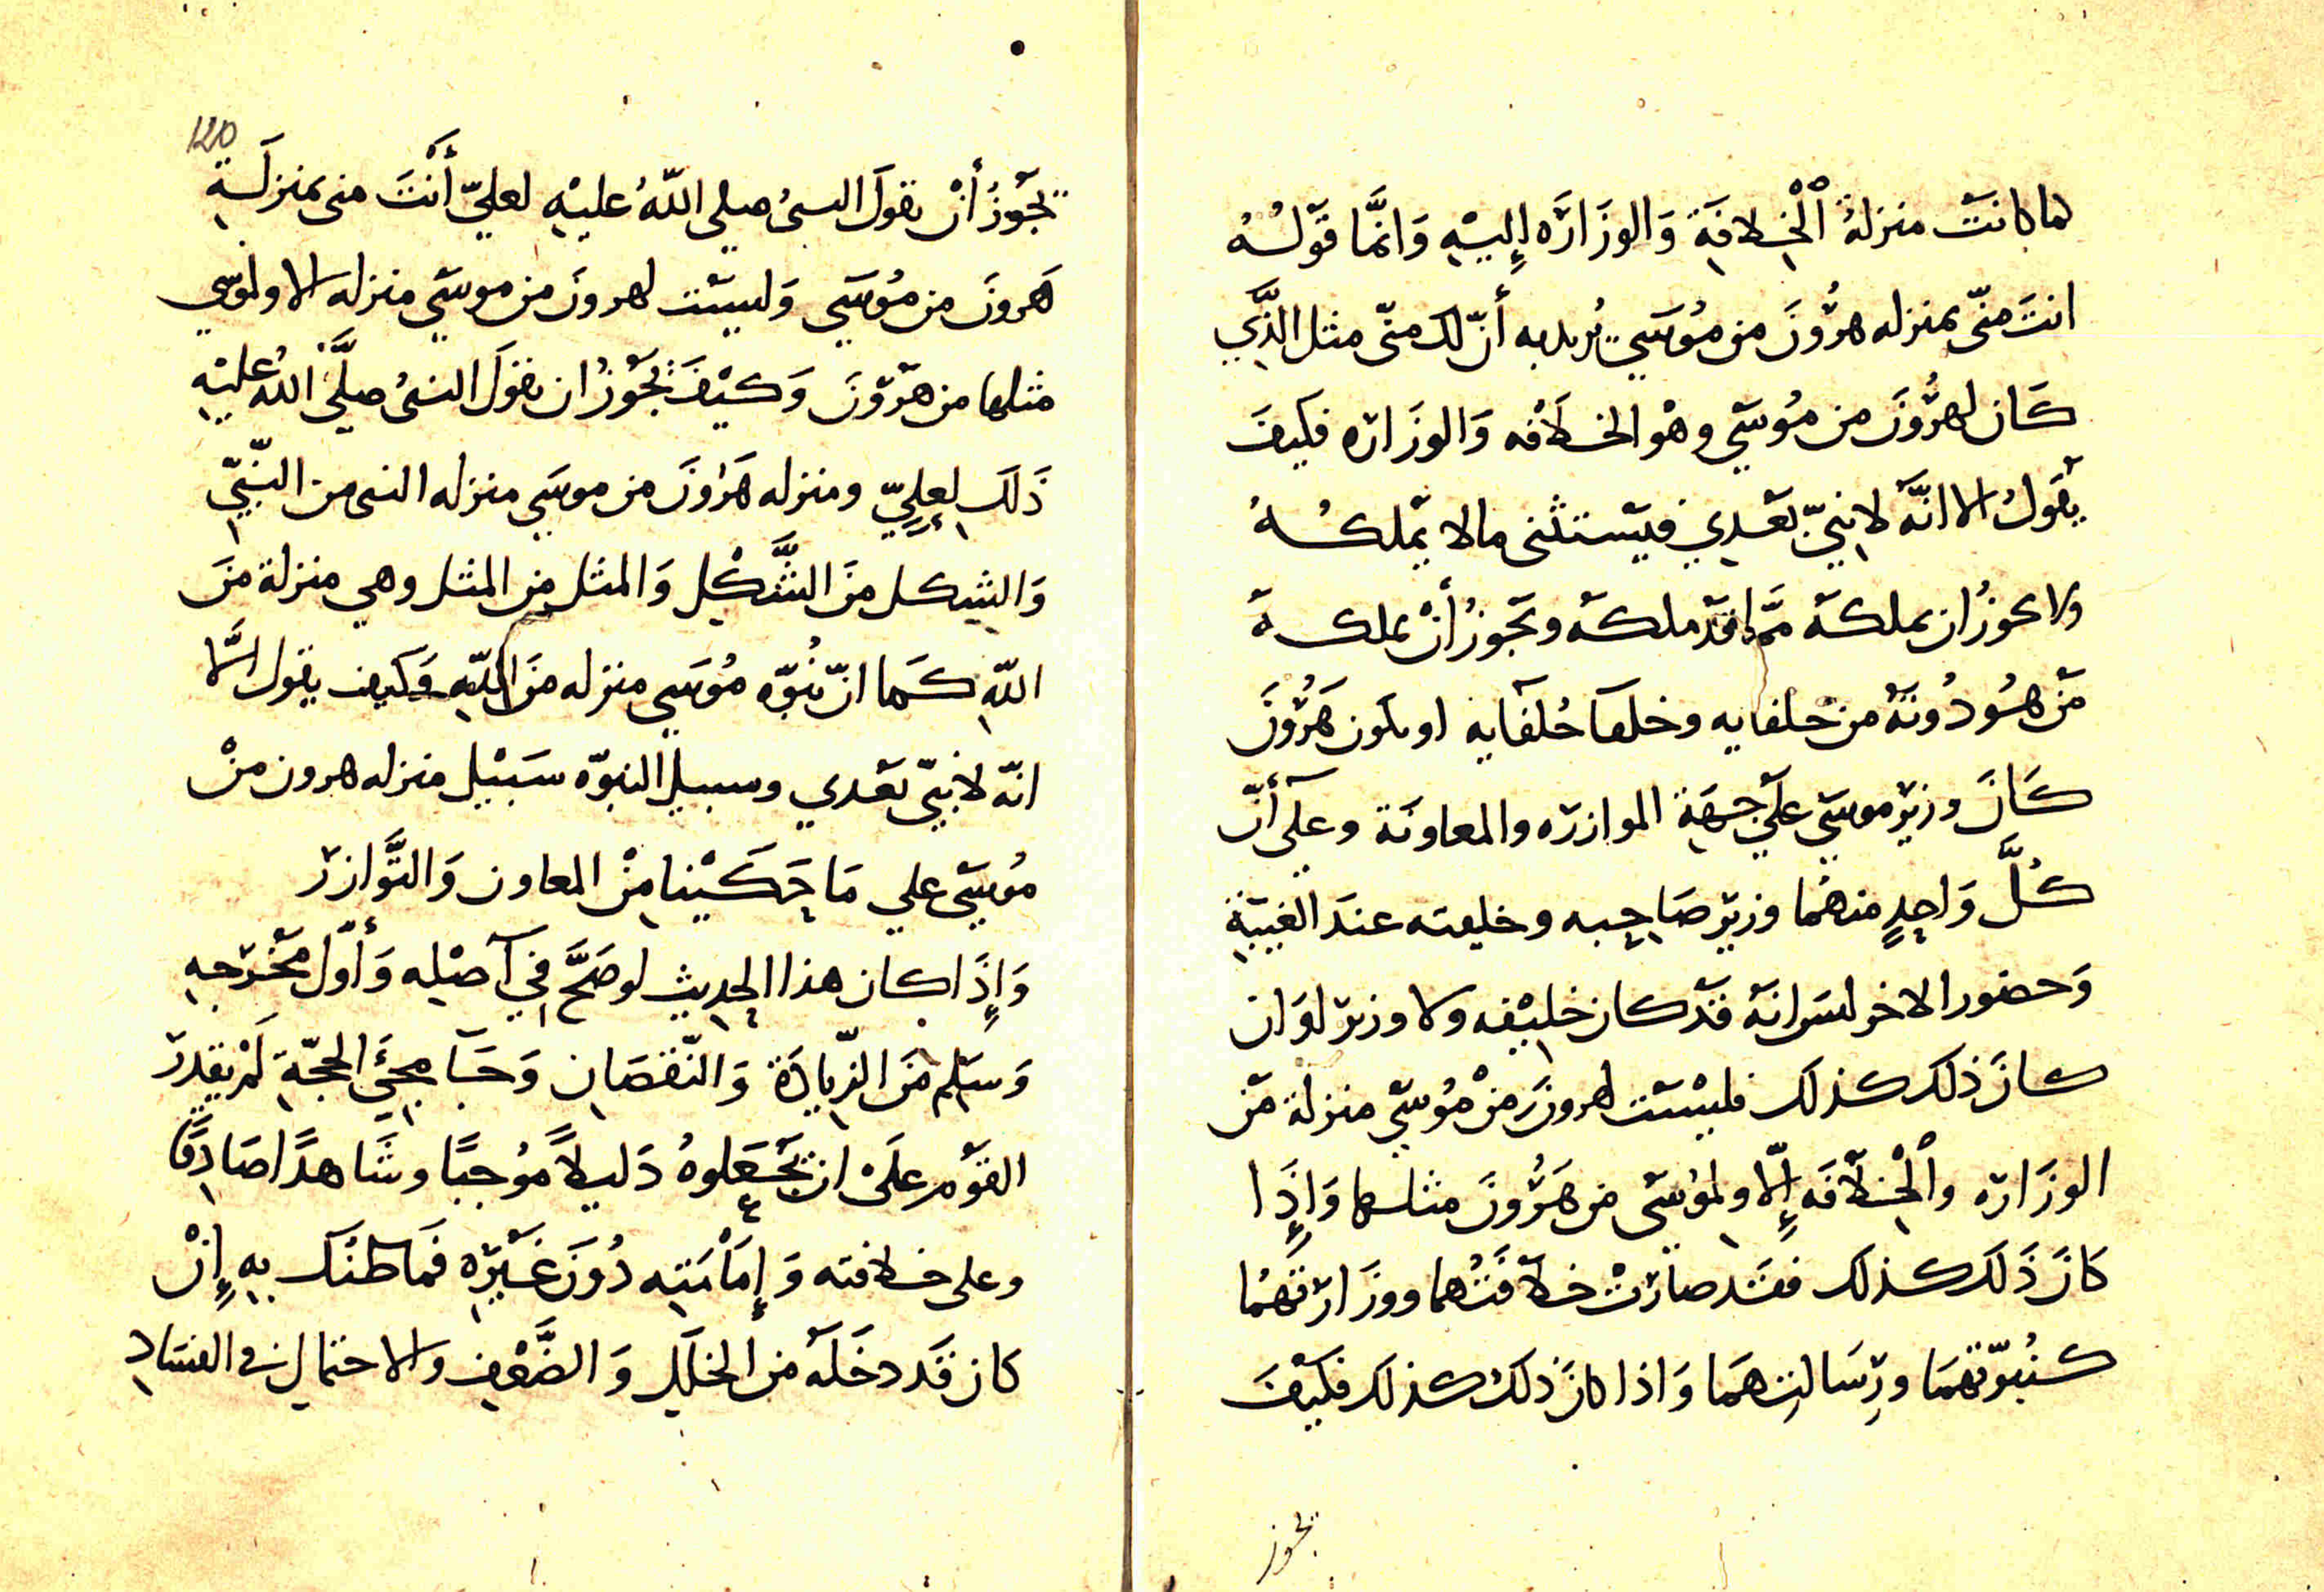 لما كانت منزلةُ الْخِلافَةِ وَالوزَارَه إِليْهِ وَانمَّا قَوْلُهُ
انتَ منّى بمنزله هرُونَ من مُوسَي يُريد به أنّ لك منّى مثل الذَّي
كَان لهرُونَ من مُوسَي وهْو الخلَافْه وَالوزَارَه فكيفَ
يقَولُ الا انَّهَ لا نبِيّ بَعَدِي فيَستثنى مالا يمَلكُهُ
ولا يجوزُ ان يملكَه ممَّا قدَ ملكَه ويَجوزُ أنْ يملكهَ
مَن هُو دُونهَ من خلفايه وخلفا خُلفَايه او يكون هَرُونَ
كَانَ وزيَر موسَي علَي جهَةِ الموازرَه والمعاونَة وعلَى أنّ
كُلَّ وَاحِدٍ منهُما وزيَر صَاحِبه وخليفته عندَ الغيبَةِ
وَحضور الاخر ليسَ انهَ قدَ كان خليْفه ولا وزير لوَ ان
كانَ ذلك كذلك فليْسَت لهرونَ مِنْ مُوسَي منزلة مَن
الوزَارَه والْخِلاَفَه إِلّا ولموُسَى من هَرُونَ مثلها وَإِذَا
كانَ ذَلكَ كذلك فقَد صارَتْ خلاَفَتُهما ووزَارَتهُما
كنُبوّتهمَا ورِسَالتِهمَا وَاذا كانَ ذلكَ كذلك فكيَفَ
يجوز
120
يَجَوزُ أنْ يقولَ النبيُ صلى اللّهُ عليْهِ لعليّ أَنْتَ منى بمنزلَةِ
هَرونَ من مُوسَي وَليسَت لهرونَ من موسَي منزله الا ولموسَي
مثلها من هَروَنَ وَكيْفَ يَجَوُزُ ان يقولَ النبىُ صلَّى اللهُ عليْهِ
ذَلكَ لِعلِيّ ومنزله هَرَاونَ من موسَي منزله النبى من النَّبيّ
وَالشِكل منَ الشَّكْلِ وَالمثل مِن المثل وهي منزلة منَ
اللّهِ كَما انّ نُبوّه مُوسَي منزله منَ اللّهِ وَكيف يقول الَّا
انّه لا نبيّ بَعَدي وسبيل النبوّه سَبيْل منزله هرون منْ
مُوسَي علي مَا حَكيْنا مِنْ المعاون وَالتَّوازر
وَإِذَا كان هذا الحديث لو صَحَّ فِي اَصْلِه وَأَوّل مَخْرَجِهِ
وَسَلِم منَ الزّيادَةِ وَالنّقصَانِ وَجَا مجئَ الحجّةِ لَمْ يقدِر
القوَم علَىْ ان يَجَعَلوهُ دَليلاً مُوجبًا وشَاهدًا صَادِقًا
وعلى خلافته وَإِمَامَتِه دُونَ غَيرِه فَما ظنَك بهِ إِنْ
كان قَد دخَلَهَ من الخَللِ وَالضَّعَفِ والاحتمالِ في الفسَادِ